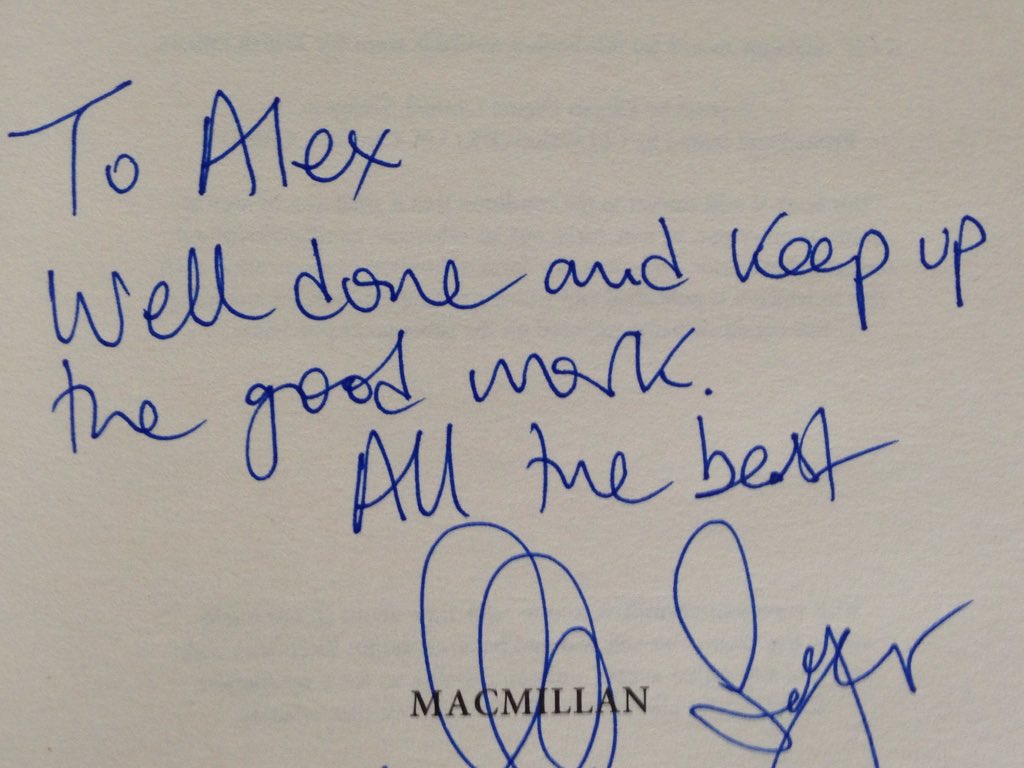 To Alex
Well done and keep up
the good work.
All the best
MACMILLAN